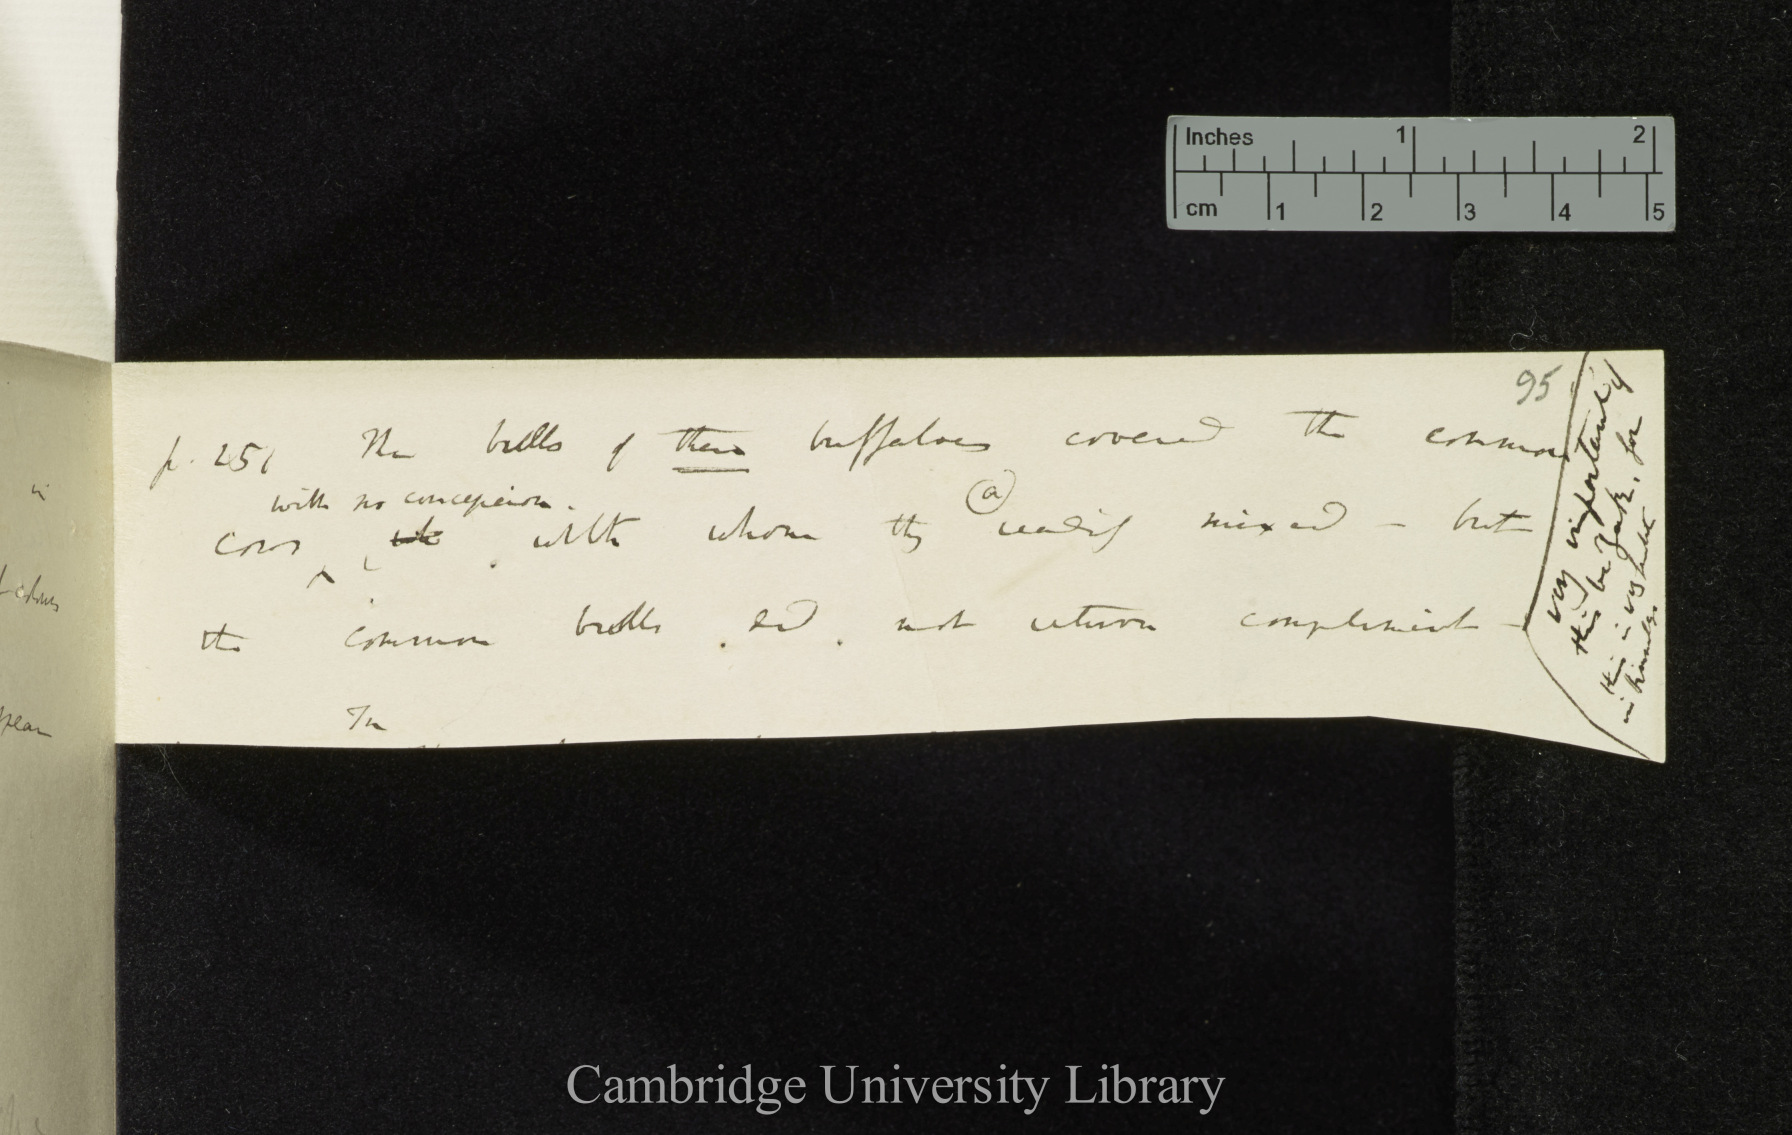 Inches 1 2
cm 1 2 3 4 5
95
p. 251 The bulls of these buffaloes covered the common
with no conception.
cows with whom they (a) readily mixed – but
the common bulls did not return compliment –
In
very important if
this be Yak, for
this is very habit
in Himalaya
in
colours
pear
Cambridge University Library